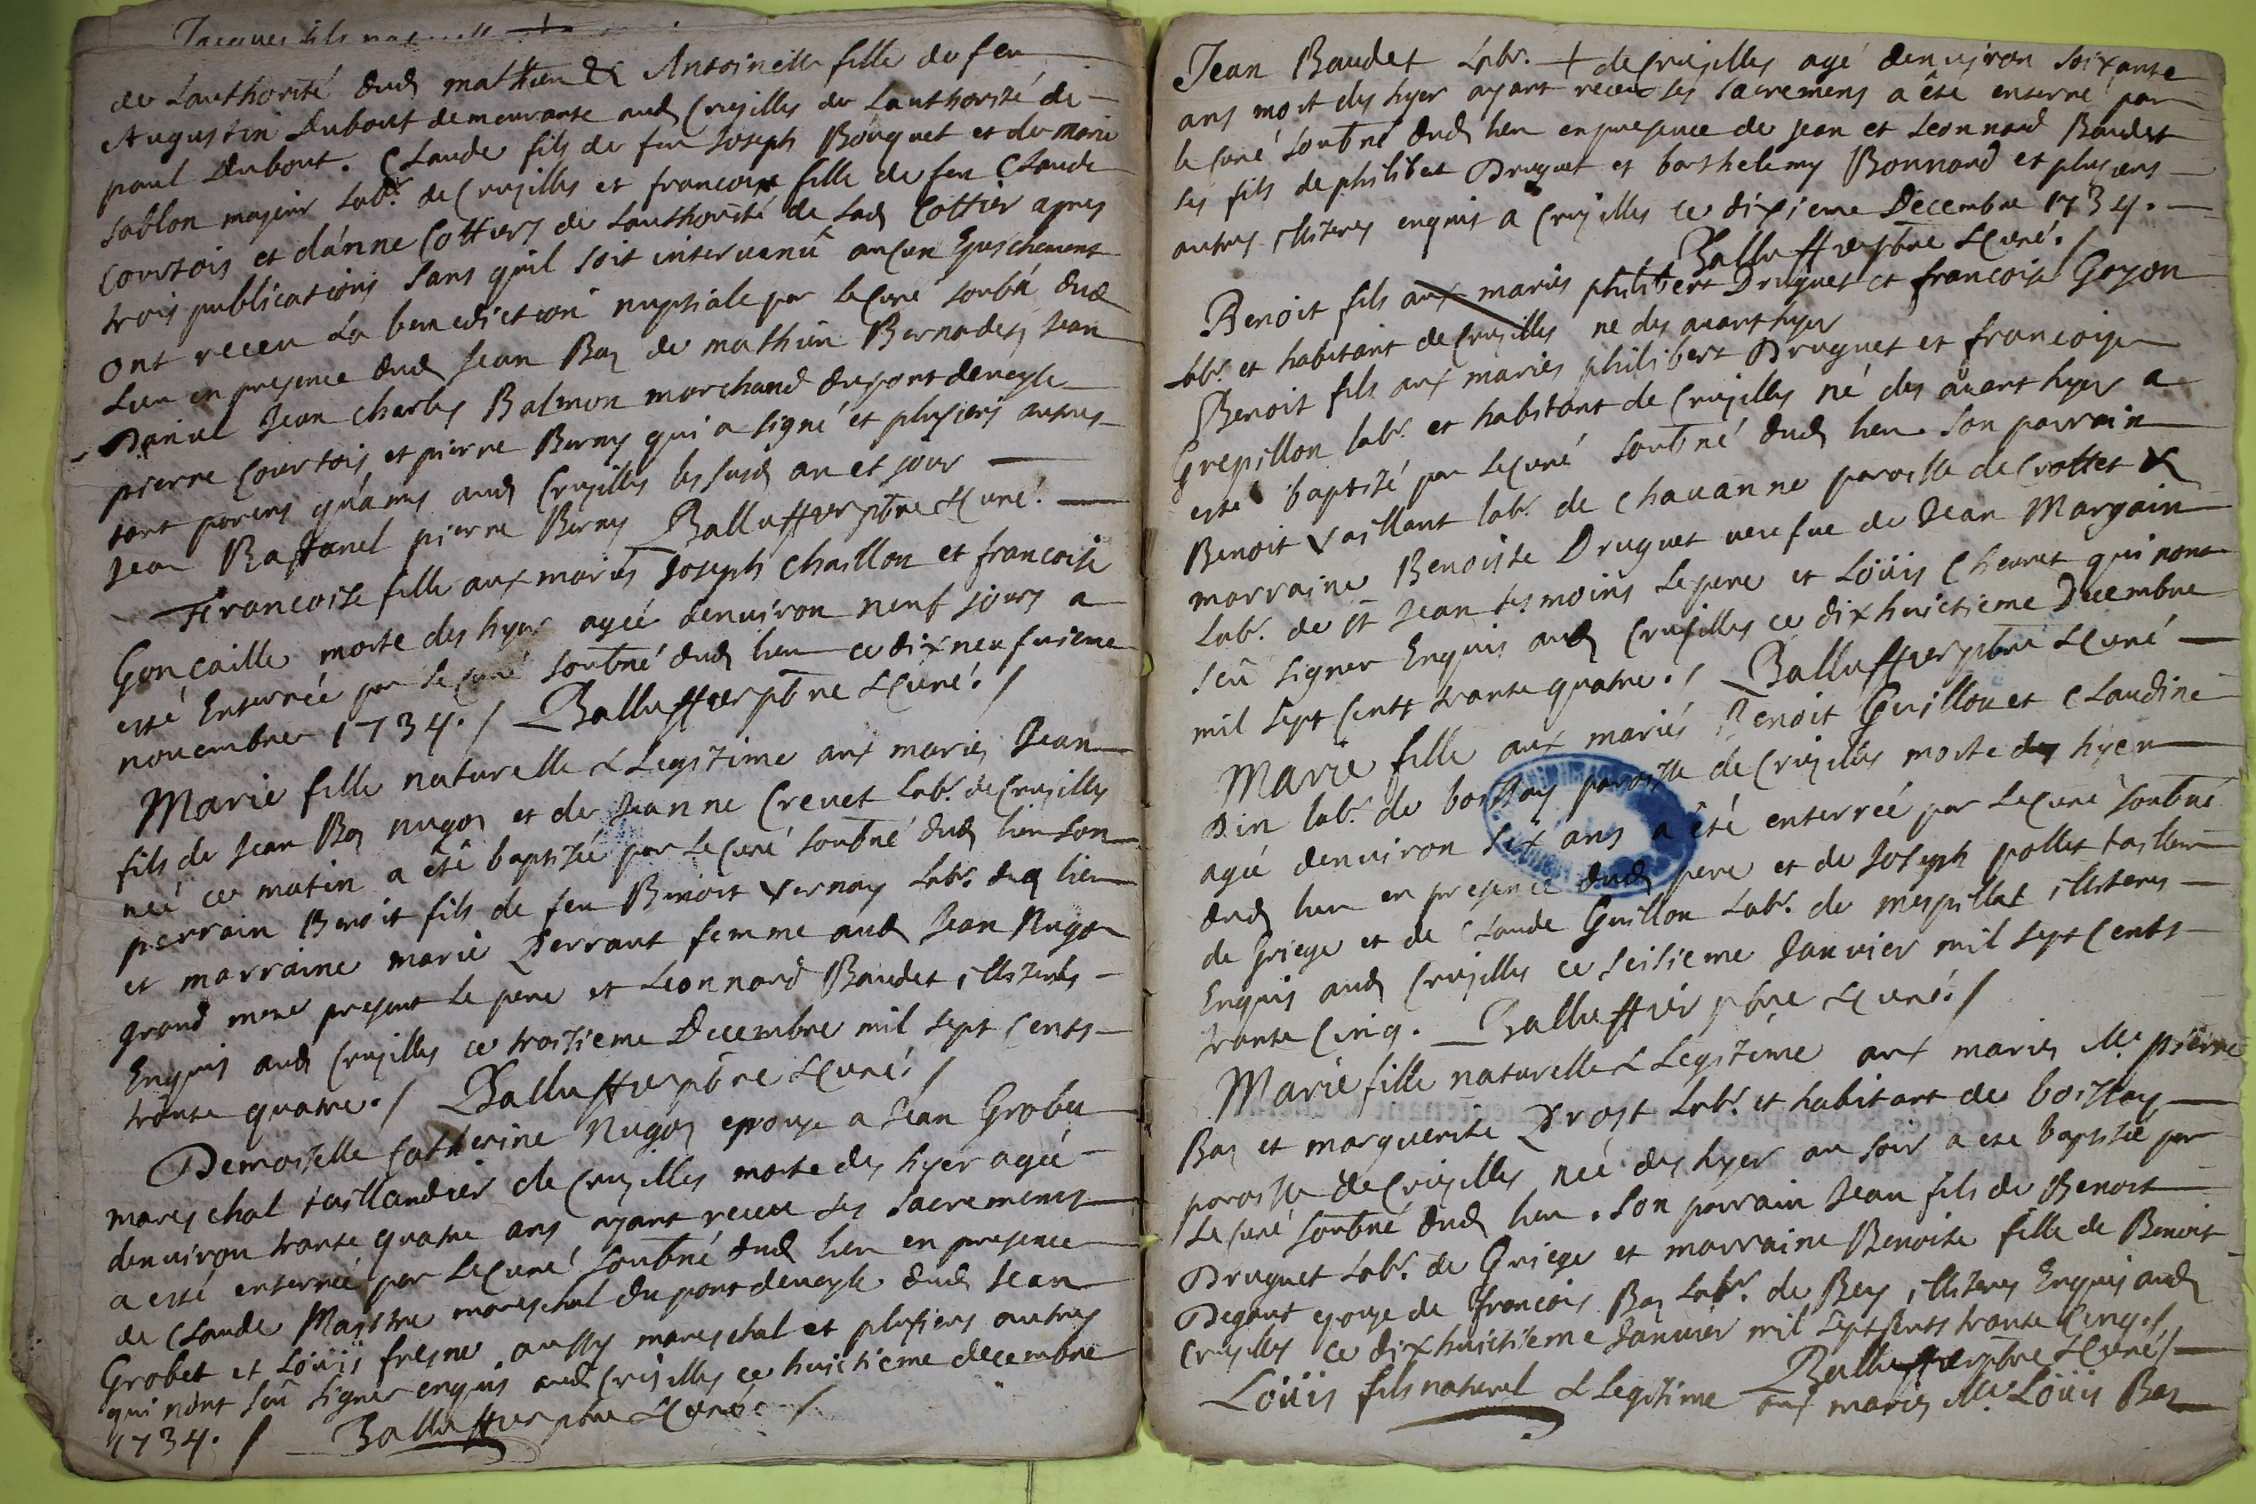 Jacques fils
de Lauthorité dud mathieu & Antoinette fille de feu
Augustin Dubout demeurante aud Crusilles de Lauthorité de
paul Dubout. Claude fils de feu Joseph Bouquet et de Marie
Sablon majeur labr. de Crusilles et francoise fille de feu Claude
Courtois et d'anne Cottiers de Lauthorité de Lad Cottier apres
trois publications sans quil soit intervenû aucun Epeschement
ont receu La benediction nuptiale par Le Curé soubné dud
Lieu en presence dud Jean Bas de mathieu Bernadet Jean
Daniel Jean Charles Balmon marchand du pont deveyle
pierre Courtois et pierre Berny qui a signé et plusieurs autres
tant parens qu'amis aud Crusilles les susd an et jour
Jean pierre Berny Balluffier pbre & Curé.
Francoise fille aux mariés Joseph Chaillon et francoise
Goncaille morte des hyer agée denviron neuf jours a
esté Enterrée par Le Curé soubné dud lieu ce dixneufvieme
novembre 1734. / Balluffier pbre & Curé. /
Marie fille naturelle & Legitime aux mariés Jean
fils de Jean Bas Nugon et de Jeanne Crevet Labr. de Crusilles
née ce matin a été baptisée par Le Curé soubné dud lieu son
parrain Benoit fils de feu Benoit Vernay Labr. dud lieu
et marraine marie Perraut femme aud Jean Nugon
grand mere presens Le pere et Leonnard Baudet illiterés
Enquis aud Crusilles ce troisieme Decembre mil sept Cents
trante quatre. / Balluffier pbre & Curé. /
Demoiselle Catherine Nugon epouse a Jean Grobet
mareschal taillandier de Crusilles morte des hyer agée
denviron trante quatre ans ayant receu Les Sacremens
a esté enterrée par Le Curé soubné dud lieu en presence
de Claude Maistre mareschal du pont deveyle dud Jean
Grobet et Loüis fresne aussy mareschal et plusieurs autres
qui n'ont sceu signer enquis aud Crusilles ce huictieme decembre
1734. / Balluffier pbre & Curé. /
Jean Baudet Labr. + de Crusilles agé denviron soixante
ans mort des hyer ayant receu Les sacremens a été enterré par
le Curé soubné dud lieu en presence de Jean et Leonnard Baudet
ses fils de philibert Druguet et barthelemy Bonnard et plusieurs
autres illiteres enquis a Crusilles ce dixieme Decembre 1734.
Balluffier pbre & Curé. /
Benoit fils aux mariés philibert Druguet et francoise Goyon
labr. et habitant de Crusilles né des avanthyer
Benoit fils aux mariés philibert Druguet et francoise
Grepillon labr. et habitant de Crusilles né des avant hyer a
esté baptisé par Le Curé soubné dud lieu. Son parrain
Benoit Vaillant labr. de Chavanne paroisse de Crottet &
marraine Benoiste Druguet veufve de Jean Margain
Labr. de St Jean tesmoins Le pere et Loüis Chevret qui n'ont
sceû signer Enquis aud Crusilles ce dixhuictieme Decembre
mil sept Cents trante quatre. / Balluffier pbre & Curé
Marie fille aux mariés Benoit Guillon et Claudine
Din labr. de boissay paroisse de Crusilles morte des hyer
agée denviron six ans a été enterrée par Le Curé soubné
dud lieu en presence dud pere et de Joseph pollet tailleur
de Griege et de Claude Guillon Labr. de mespillat illiteres
Enquis aud Crusilles ce seisieme Janvier mil sept Cents
trante Cinq. Balluffier pbre & Curé. /
Marie fille naturelle & Legitime aux mariés Me. pierre
Bas et marguerite Prost Labr. et habitant de boissay
paroisse de Crusilles née des hyer au soir a été baptisée par
Le Curé soubné dud lieu. Son parrain Jean fils de Benoit
Druguet Labr. de Griege et marraine Benoite fille de Benoit
Degout epouse de francois Bas Labr. de Bey illiteres Enquis aud
Crusilles ce dixhuictieme Janvier mil sept Cents trante Cinq. /
Balluffier pbre & Curé /
Loüis fils naturel & Legitime aux mariés Me. Loüis Bas